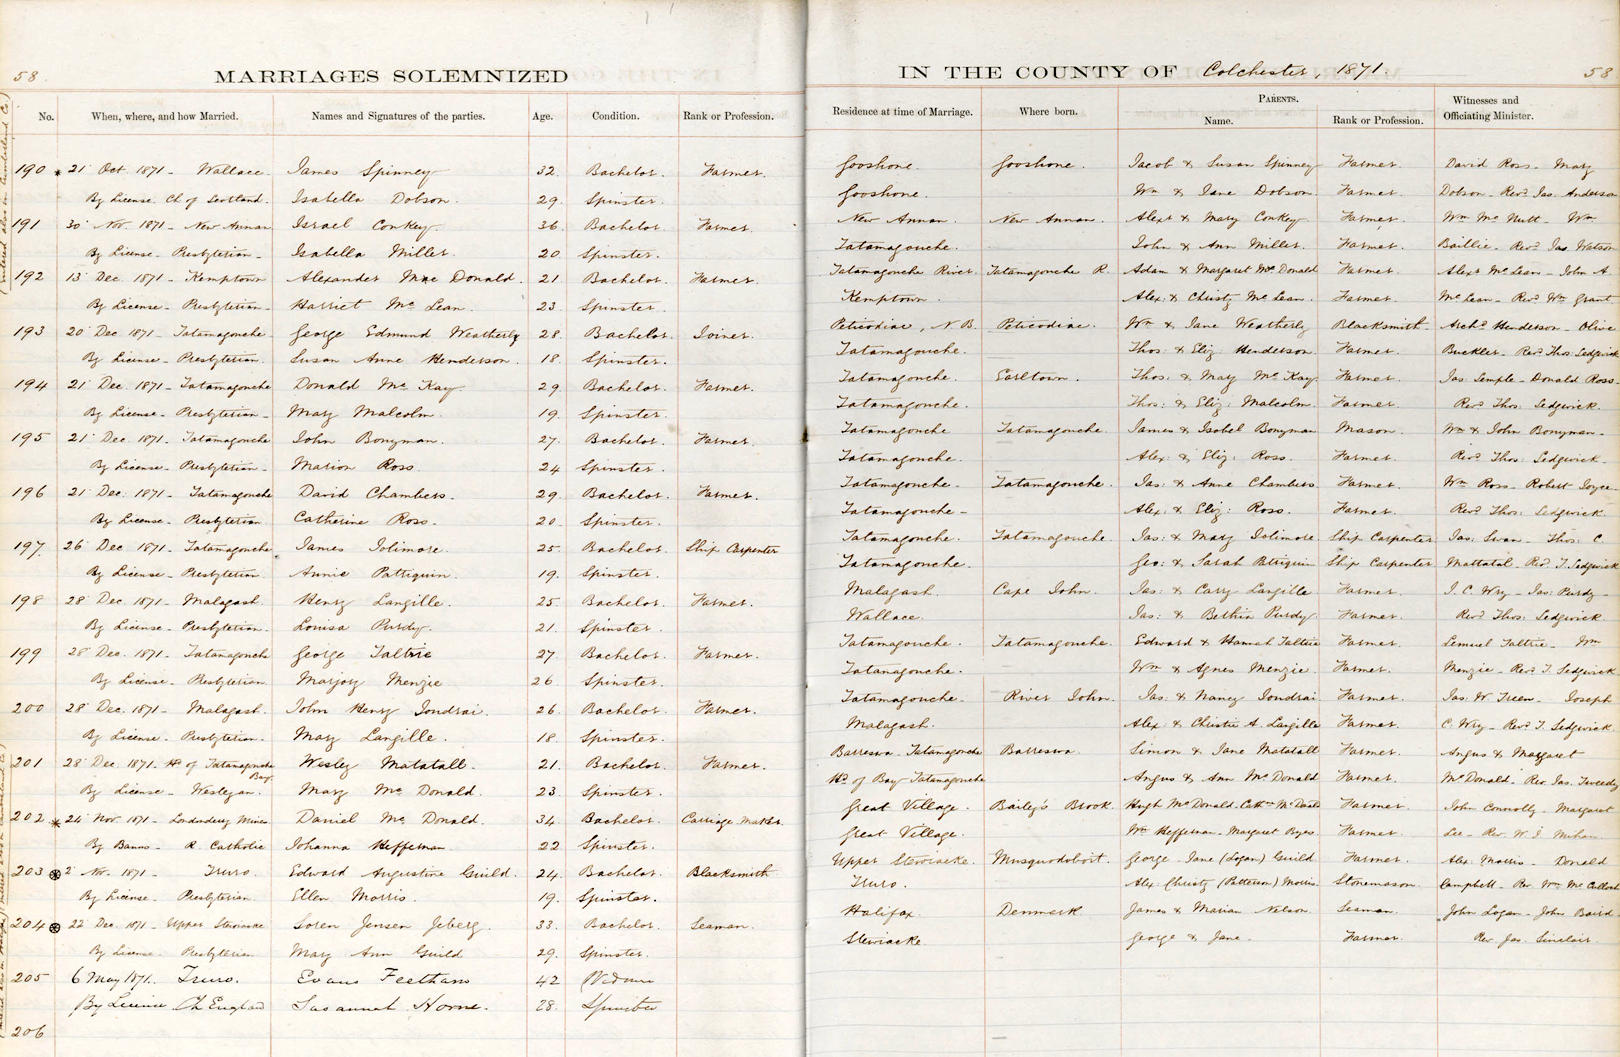 58
MARRIAGES SOLEMNIZED
IN THE COUNTY OF Colchester, 1871.
58
No. When, where, and how Married. Names and Signatures of the parties. Age. Condition. Rank or Profession. Residence at time of Marriage. Where born. PARENTS. Name. Rank or Profession. Witnesses and Officiating Minister.
190 21 Oct. 1871 - Wallace James Spinney 32 Bachelor Farmer. Gooshone. Gooshone. Jacob & Susan Spinney Farmer. David Ross - Mary
By License. Ch of Scotland. Isabella Dobson. 29. Spinster. Gooshone. Wm & Jane Dobson Farmer. Dobson - Revd Jas. Anderson
191 30 Nov. 1871 - New Annan Israel Conkey 36 Bachelor Farmer. New Annan. New Annan. Alexr & Mary Conkey Farmer. Wm Mc Nutt - Wm
By License - Presbyterian - Isabella Miller. 20. Spinster. Tatamagouche. John & Ann Miller. Farmer. Baillie - Revd Jas Watson
192 13 Dec. 1871 - Kemptown Alexander Mac Donald. 21. Bachelor Farmer. Tatamagouche River. Tatamagouche R. Adam & Margaret McDonald Farmer. Alexr McLean - John A.
By License - Presbyterian - Harriet Mc Lean. 23. Spinster. Kemptown. Alex: & Christy McLean. Farmer. McLean - Revd Wm Grant.
193 20 Dec 1871 - Tatamagouche. George Edmund Weatherby 28. Bachelor Joiner. Peticodiac, N.B. Peticodiac. Wm & Jane Weatherby Blacksmith. Archd Henderson - Olive
By License - Presbyterian. Susan Anne Henderson. 18. Spinster. Tatamagouche. Thos: & Eliz: Henderson. Farmer. Buckler - Revd Thos: Sedgwick
194 21 Dec. 1871 - Tatamagouche Donald Mc Kay 29. Bachelor. Farmer. Tatamagouche. Earltown. Thos: & Mary McKay Farmer. Jas: Semple - Donald Ross.
By License - Presbyterian - Mary Malcolm. 19. Spinster. Tatamagouche. Thos: & Eliz: Malcolm. Farmer. Revd Thos: Sedgwick.
195 21 Dec. 1871. Tatamagouche John Bonyman. 27. Bachelor. Farmer. Tatamagouche Tatamagouche. James & Isobel Bonyman Mason. Wm & John Bonyman -
By License - Presbyterian - Marion Ross. 24 Spinster. Tatamagouche. Alex: & Eliz: Ross. Farmer. Revd Thos: Sedgwick.
196 21 Dec. 1871 - Tatamagouche David Chambers. 29. Bachelor. Farmer. Tatamagouche - Tatamagouche. Jas: & Anne Chambers Farmer. Wm Ross - Robert Joyce -
By License - Presbyterian Catherine Ross. 20. Spinster. Tatamagouche - Alex: & Eliz: Ross. Farmer. Revd Thos: Sedgwick
197 26 Dec 1871 - Tatamagouche James Tolimore. 25. Bachelor. Ship Carpenter Tatamagouche. Tatamagouche. Jas: & Mary Tolimore Ship Carpenter Jas: Swan - Thos: C
By License - Presbyterian. Annie Pattriquin. 19. Spinster. Tatamagouche. Geo: & Sarah Patriquin Ship Carpenter Mattatal - Revd T. Sedgwick
198 28 Dec. 1871 - Malagash. Henry Langille. 25. Bachelor. Farmer. Malagash. Cape John. Jas: & Cary Langille Farmer. J. C. Wry - Jas: Purdy -
By License. Presbyterian. Louisa Purdy. 21. Spinster. Wallace. Jas: & Bethia Purdy. Farmer. Revd Thos: Sedgwick
199 28 Dec. 1871. Tatamagouche George Taltrie 27. Bachelor. Farmer. Tatamagouche. Tatamagouche. Edward & Hannah Taltrie Farmer. Lemuel Taltrie - Wm
By License - Presbyterian Marjory Menzie 26 Spinster. Tatamagouche. Wm & Agnes Menzie Farmer. Menzie - Revd T. Sedgwick
200 28 Dec. 1871 - Malagash. John Henry Jondrai. 26 Bachelor. Farmer. Tatamagouche. River John. Jas: & Nancy Jondrai Farmer. Jas. W. Treen - Joseph
By License - Presbyterian. Mary Langille. 18. Spinster. Malagash. Alex: & Christie A. Langille Farmer. C. Wry - Revd T. Sedgwick.
201 28 Dec. 1871. Hd of Tatamagouche Bay. Wesley Matatall. 21. Bachelor. Farmer. Barreswa. Tatamagouche Barreswa. Simon & Jane Matatall Farmer. Angus & Margaret
By License - Wesleyan. Mary Mc Donald. 23. Spinster. Hd of Bay Tatamagouche Angus & Ann McDonald Farmer. McDonald - Rev Jas. Tweedy
202 24 Nov. 1871 - Londonderry Mines Daniel Mc Donald. 34 Bachelor. Carriage maker. Great Village. Bailey's Brook Hugh McDonald. Farmer. John Connolly - Margaret
By Banns - R. Catholic Johanna Heffernan. 22 Spinster. Great Village. Wm Heffernan - Margaret Farmer. Lee - Rev. W. J.
203 2 Nov. 1871 - Truro. Edward Augustine Guild. 24. Bachelor. Blacksmith. Upper Stewiacke. Musquodoboit. George. Jane (Logan) Guild Farmer. Alex: Morris - Donald
By License. Presbyterian. Ellen Morris. 19. Spinster. Truro. Alex: Christy (Patterson) Morris. Stonemason. Campbell - Rev. Wm McCulloch
204 22 Dec. 1871 - Upper Stewiacke Soren Jensen Jeberg. 33. Bachelor. Seaman. Halifax. Denmark James & Marian Nelson Seaman. John Logan - John Baird
By License. Presbyterian Mary Ann Guild 29. Spinster. Stewiacke George & Jane. Farmer. Rev Jas. Sinclair.
205 6 May 1871. Truro. Evans Feethans 42
By License Ch England Susannah Horne. 28. Spinster
206